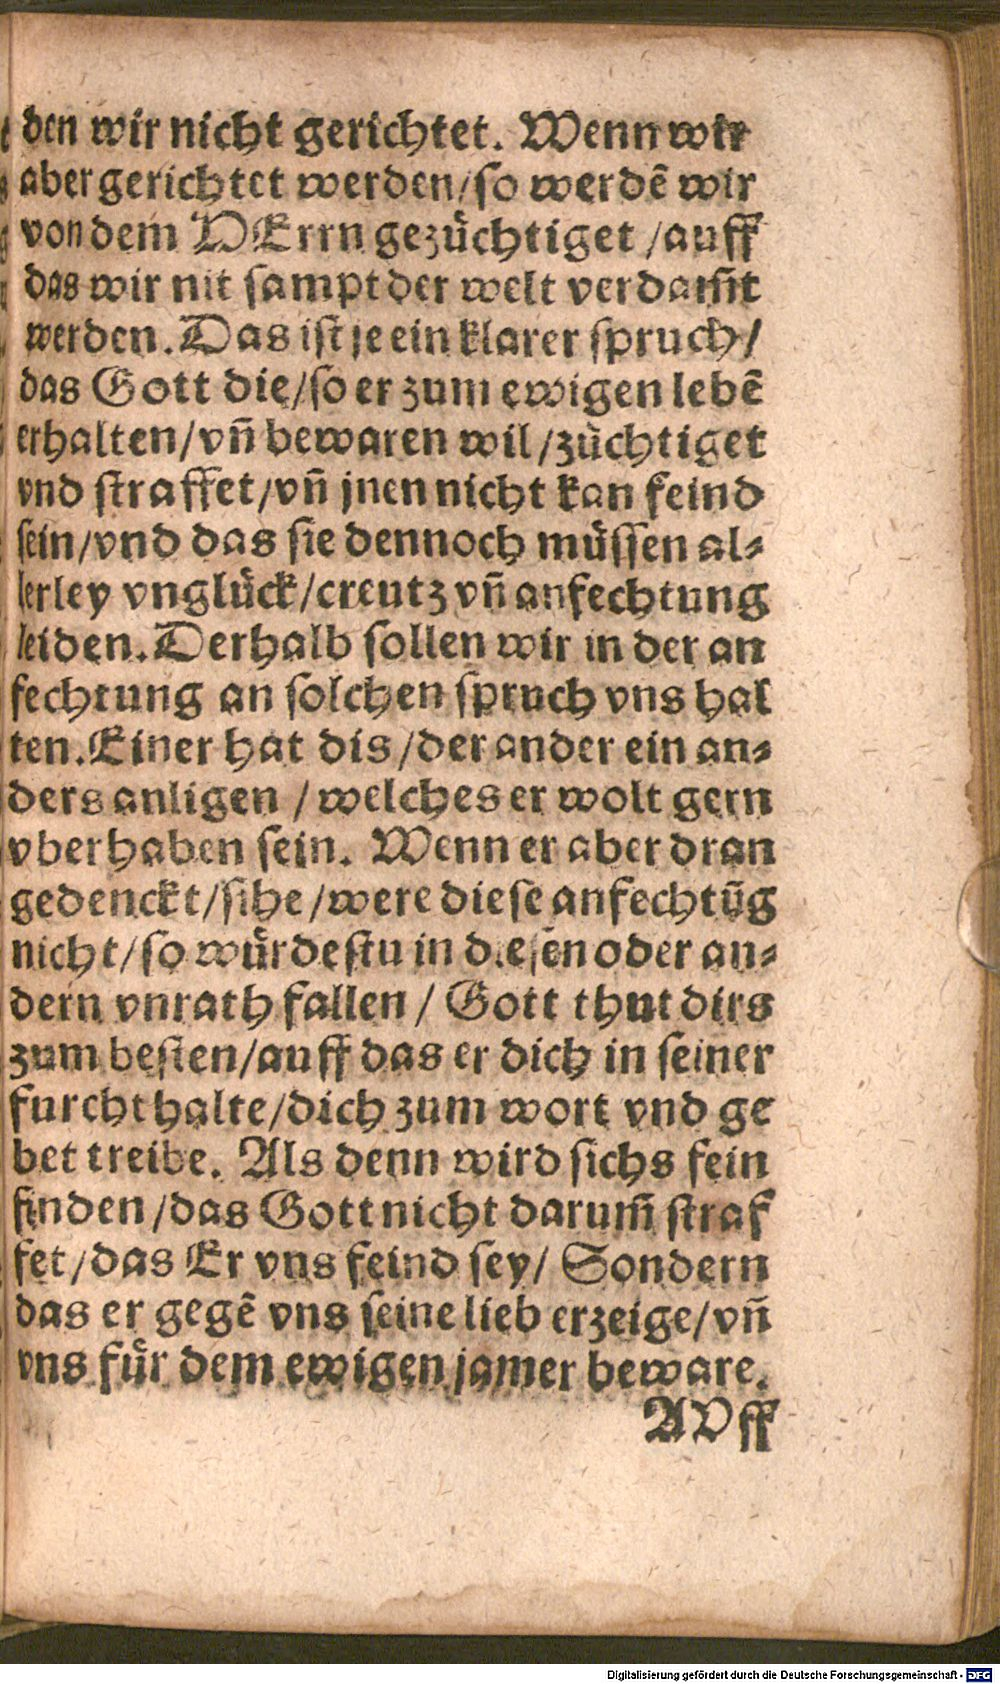 den wir nicht gerichtet. Wenn wir
aber gerichtet werden/so werdẽ wir
von dem HErrn gezüchtiget /auff
das wir nit sampt der welt verdam̃t
werden. Das ist je ein klarer spruch/
das Gott die/so er zum ewigen lebẽ
erhalten/vñ bewaren wil/züchtiget
vnd straffet/vñ jnen nicht kan feind
sein/vnd das sie dennoch müssen al⸗
lerley vnglück/creutz vñ anfechtung
leiden. Derhalb sollen wir in der an
fechtung an solchen spruch vns hal
ten. Einer hat dis/der ander ein an⸗
ders anligen / welches er wolt gern
vberhaben sein. Wenn er aber dran
gedenckt/sihe/were diese anfechtũg
nicht/so würdestu in diesẽn oder an⸗
dern vnrath fallen/ Gott thut dirs
zum besten/auff das er dich in seiner
furcht halte/dich zum wort vnd ge
bet treibe. Als denn wird sichs fein
finden/das Gott nicht darum̃ straf
fet/das Er vns feind sey/ Sondern
das er gegẽ vns seine lieb erzeige/vñ
vns für dem ewigen jamer beware.
AVff
Digitalisierung gefördert durch die Deutsche Forschungsgemeinschaft - DFG